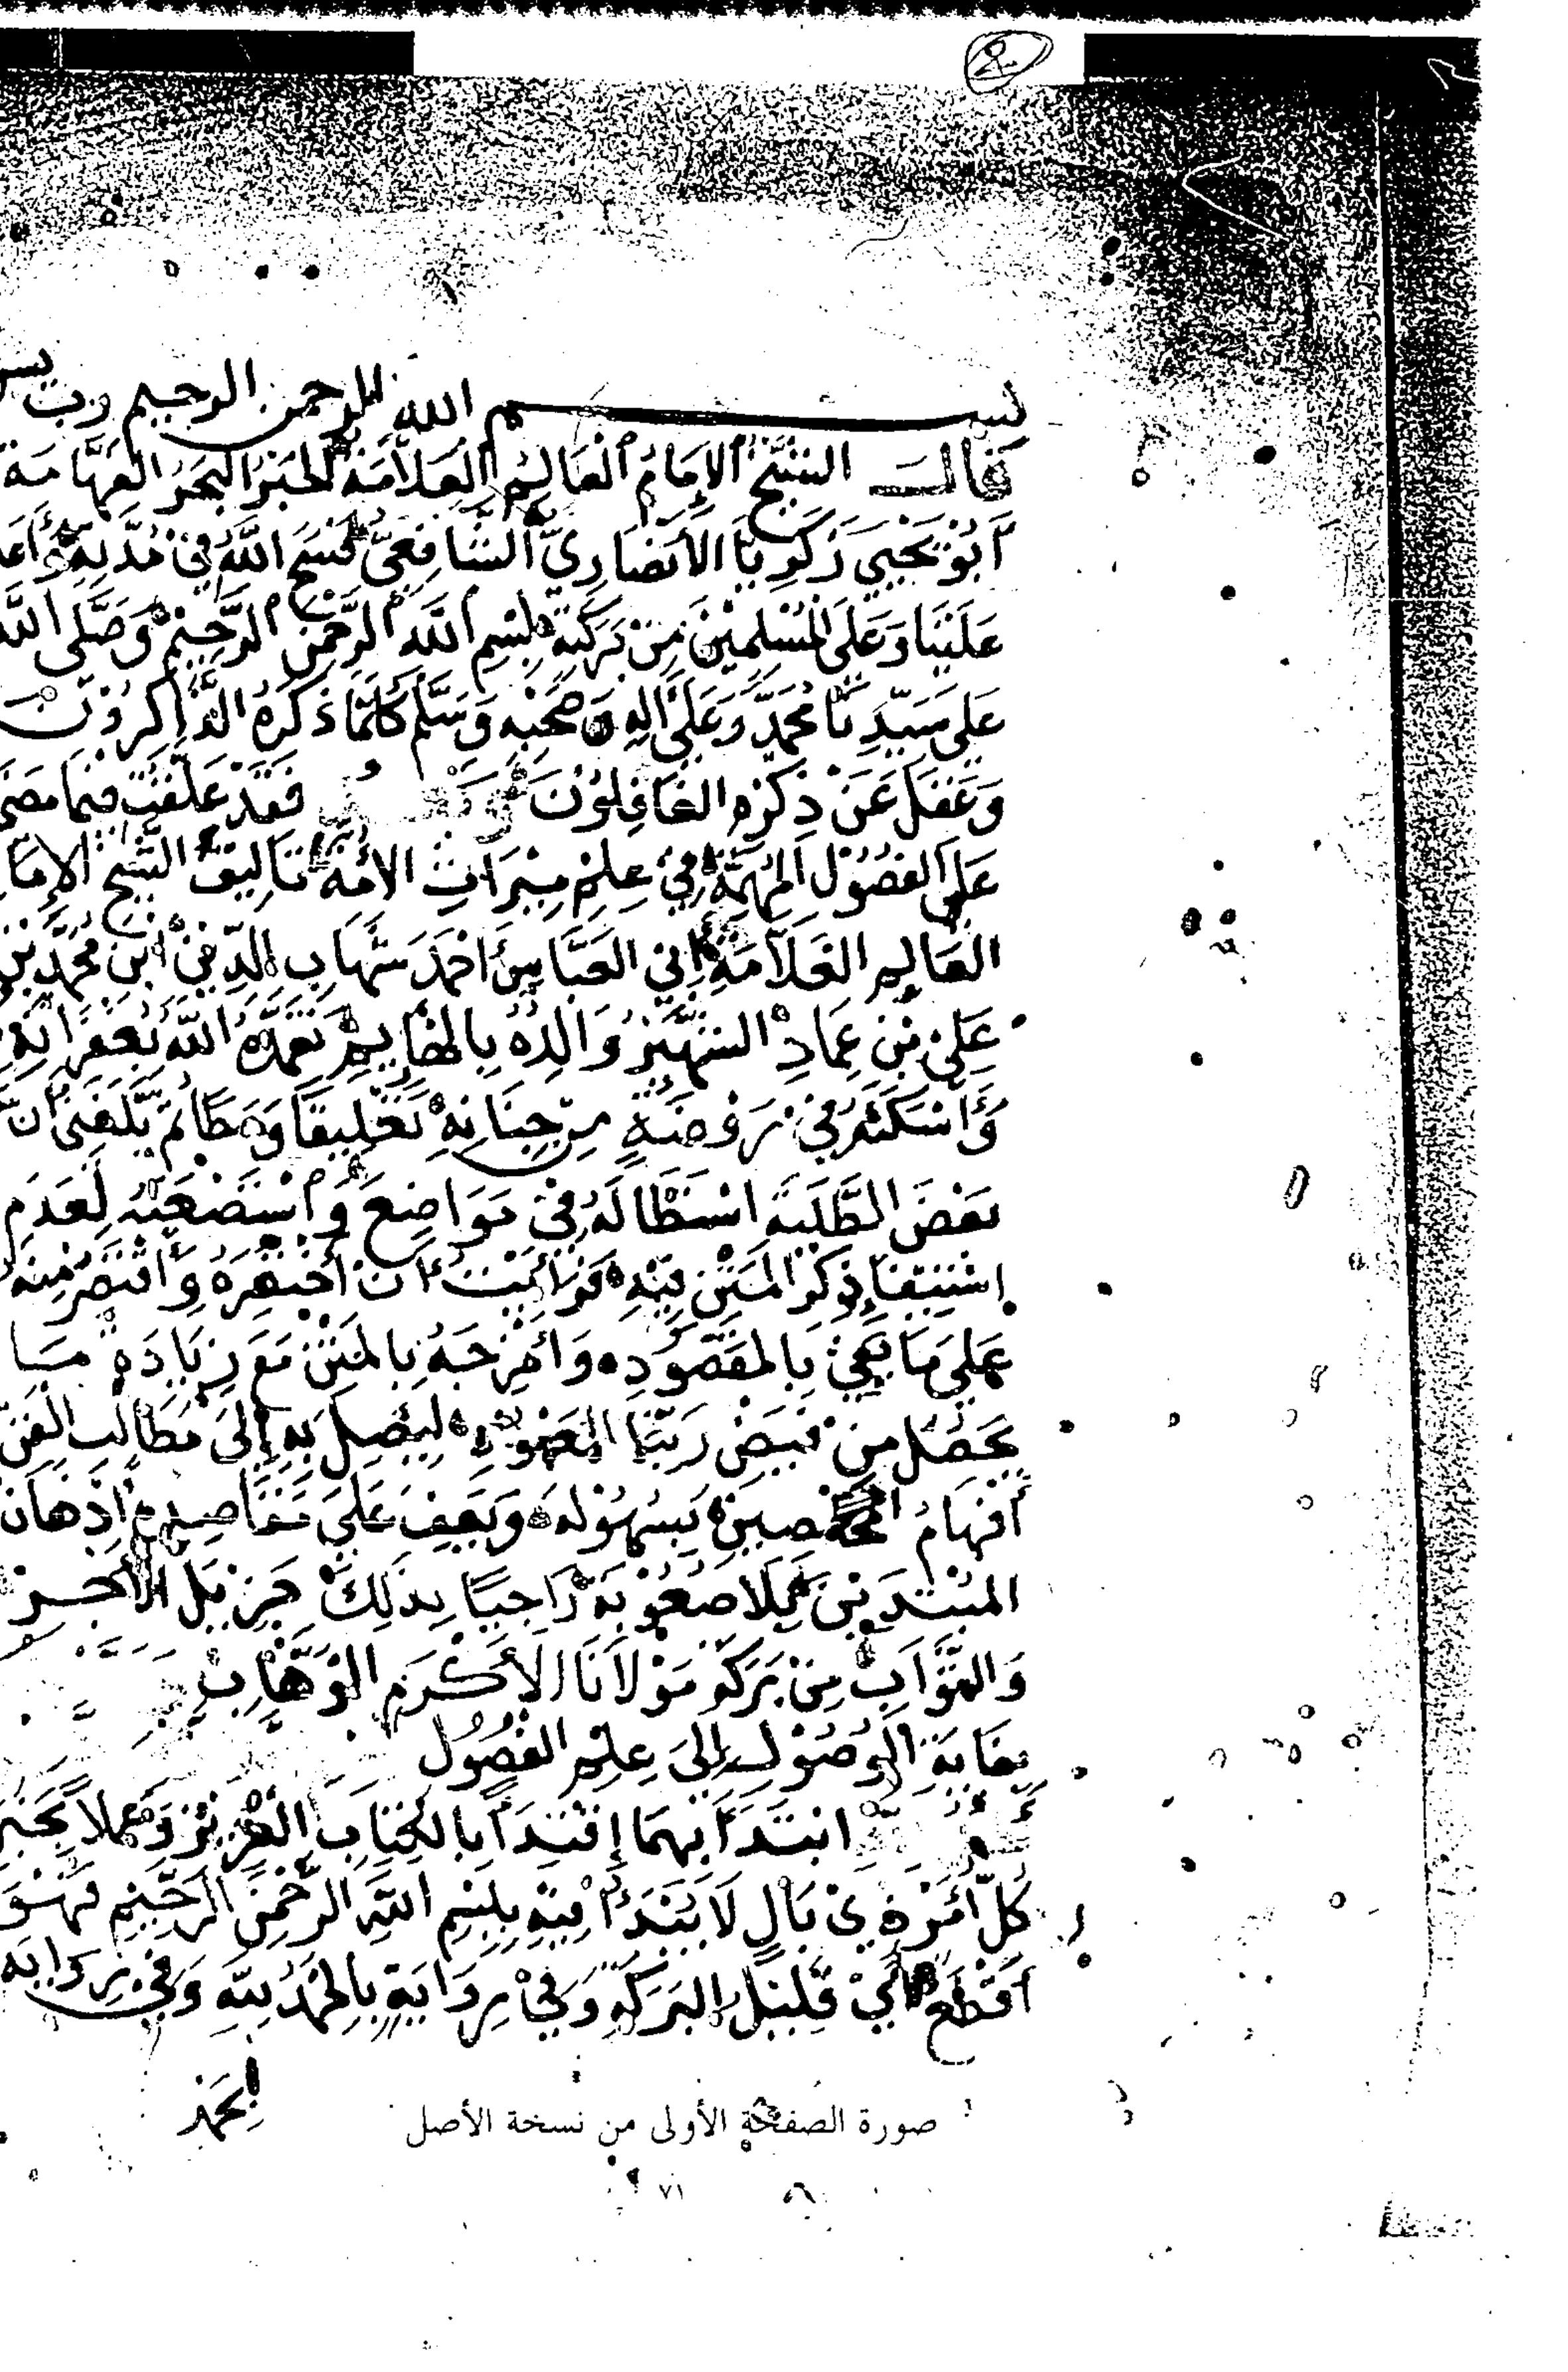 بسم الله الرحمن الرحيم رب يسر
قال الشيخ الإمام العالم العلامة الحبر البحر الفهامة
أبو يحيى زكريا الأنصاري الشافعي فسح الله في مدته وأعا
علينا وعلى المسلمين من بركته بسم الله الرحمن الرحيم وصلى الله
على سيدنا محمد وعلى آله وصحبه وسلم كلما ذكره الذاكرون
وغفل عن ذكره الغافلون وبعد فقد علقت فيما مضى
على الفصول المهمة في علم ميراث الأمة تأليف الشيخ الإما
العالم العلامة أبي العباس أحمد شهاب الدين ابن محمد بن
علي بن عماد الشهير والده بالهايم تغمده الله بغفرانه
وأسكنه في روضة من جنانه تعليقا بلغني أن
بعض الطلبة استطاله في مواضع واستصعبه لعدم
استيفا ذكر المتن فيه فرأيت أن أختصره وأقتصر منه
على ما يفي بالمقصود وأمزجه بالمتن مع زيادة ما
يحصل من فيض ربنا المعبود ليصل به إلى مطالب الفن
أفهام بسهولة ويقف على مقاصده أذهان
المبتدين بلا صعوبة راجيا بذلك جزيل الأجر
والثواب من بركة مولانا الأكرم الوهاب
بغاية الوصول إلى علم الفصول
ابتدأ بهما إقتدا بالكتاب العزيز وعملا بخبر
كل أمر ذي بال لا يبتدأ فيه ببسم الله الرحمن الرحيم فهو
أقطع أي قليل البركة وفي رواية بالحمد لله وفي رواية
بحمد
صورة الصفحة الأولى من نسخة الأصل
٧١